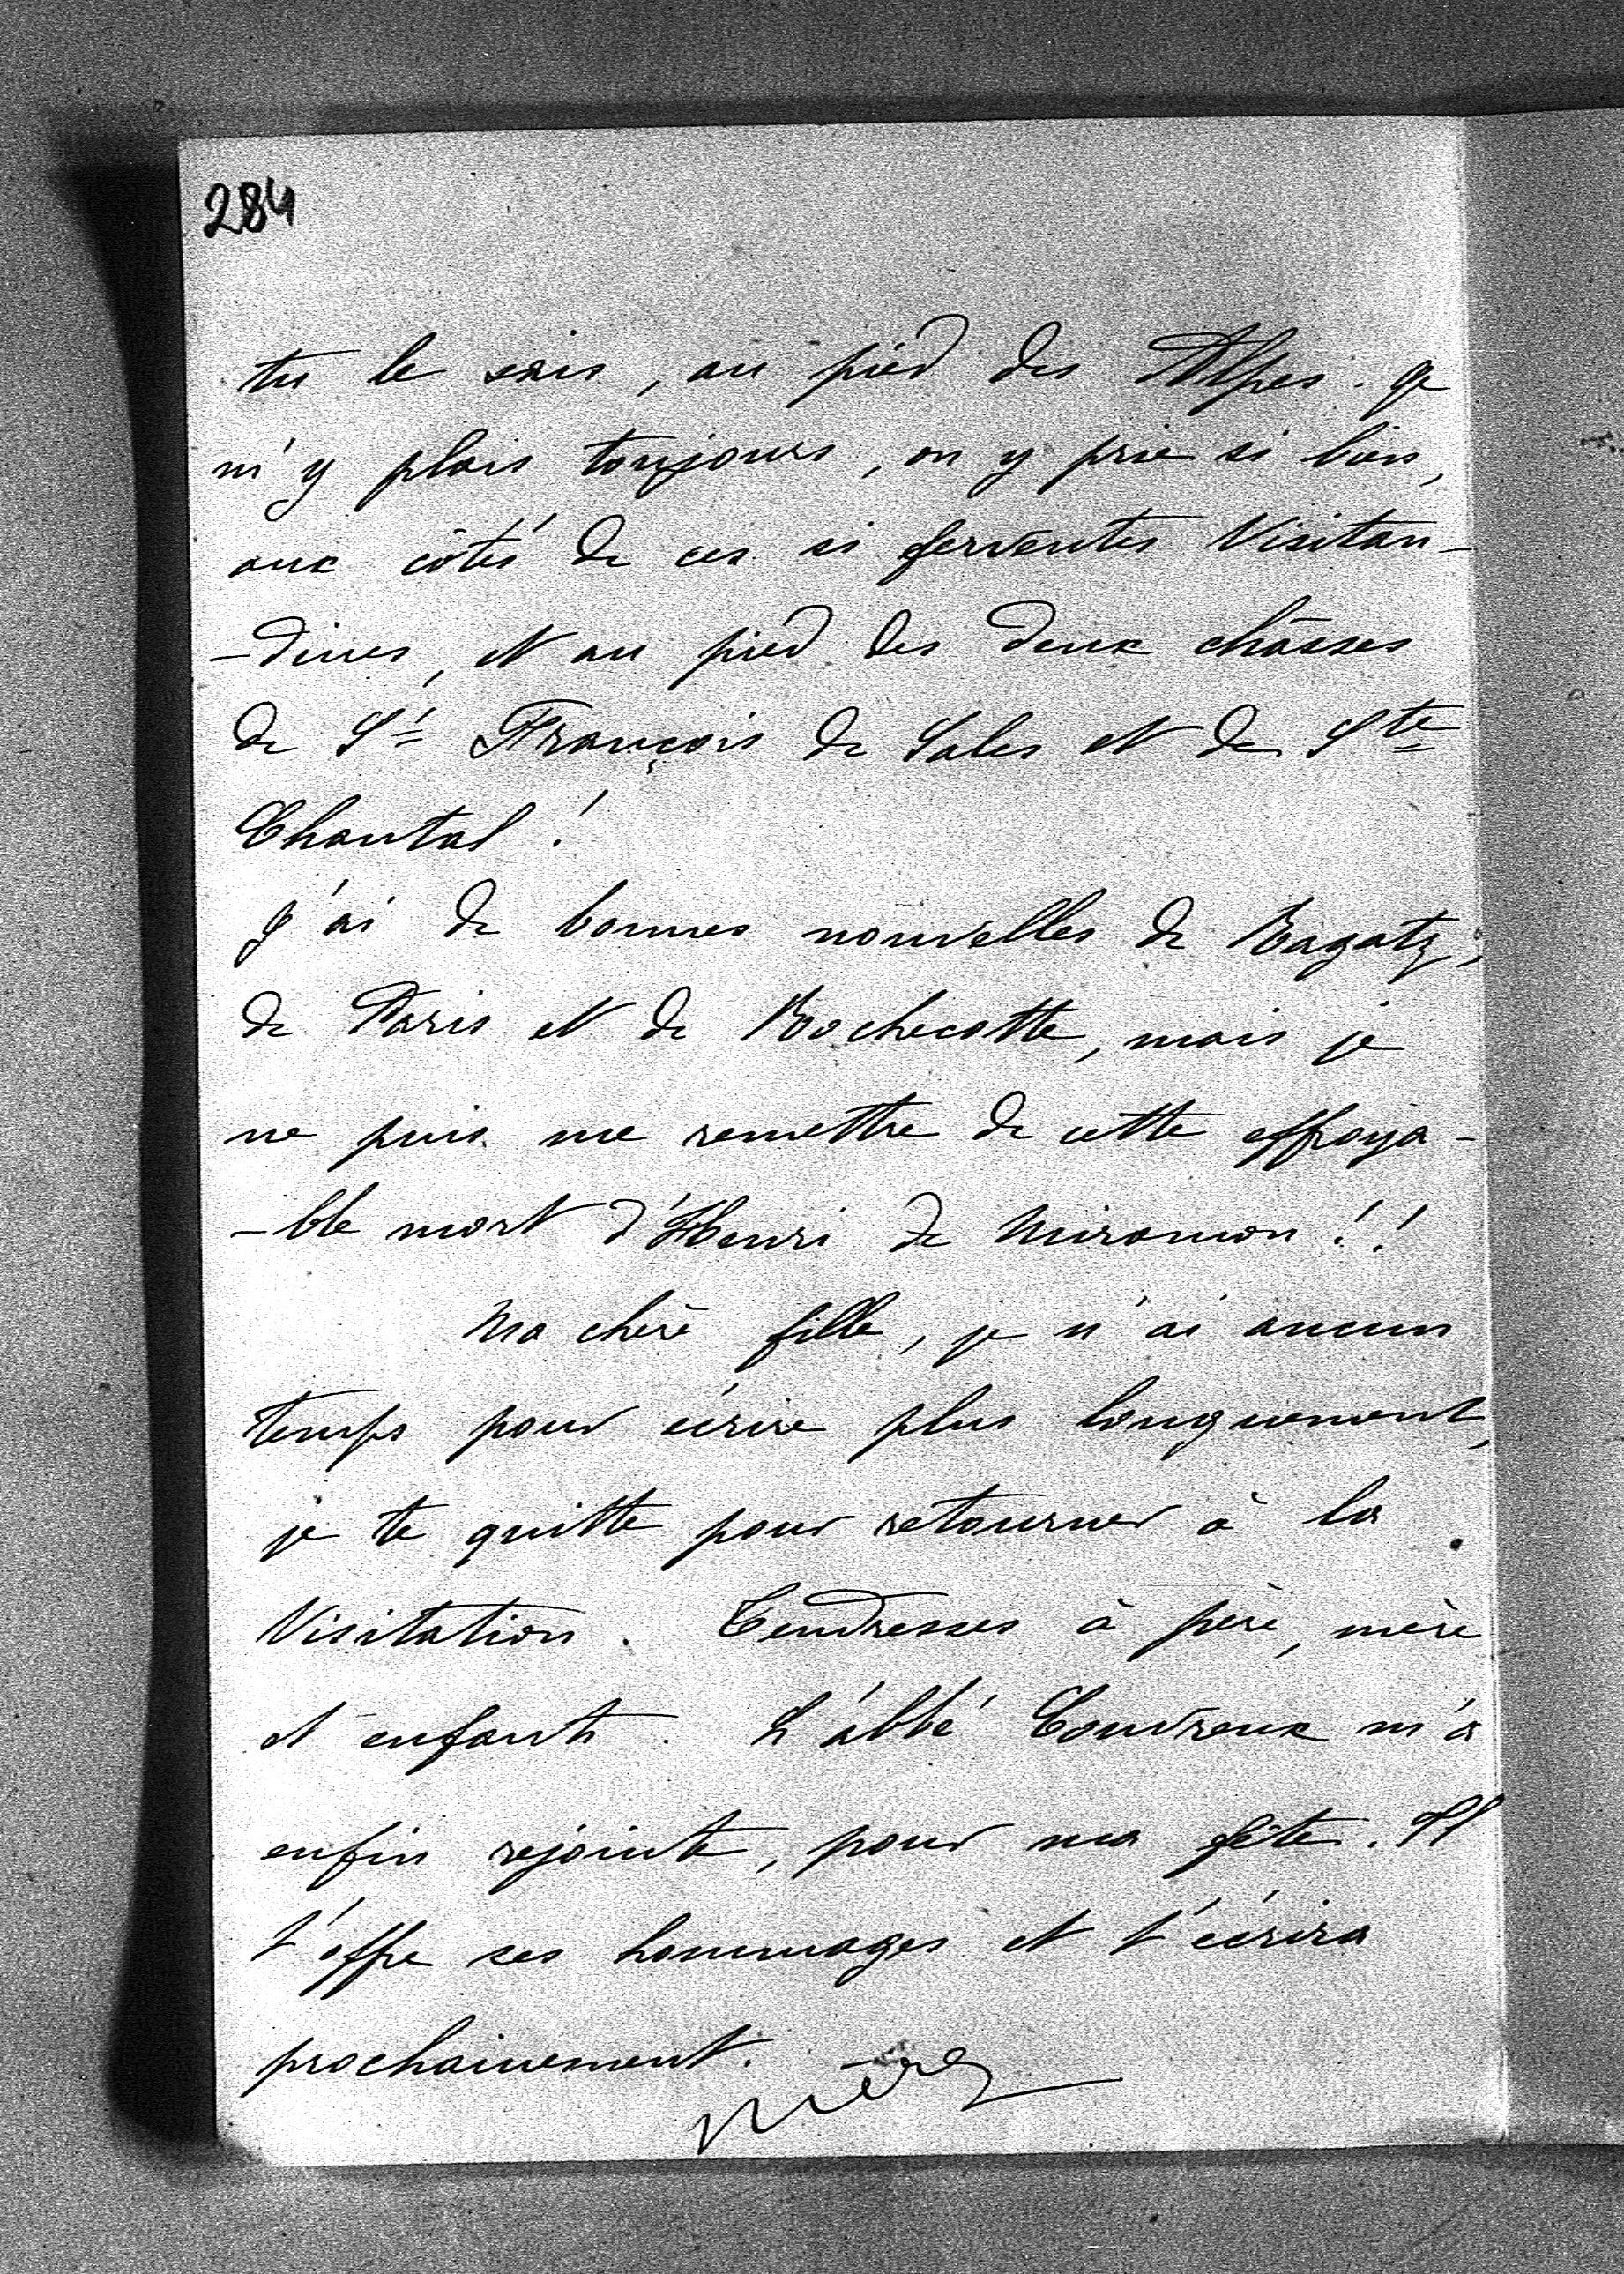 284
tu le sais, au pied des Alpes. Je
m'y plais toujours, on y prie si bien,
aux côtés de ces si ferventes Visitan-
-dines, et au pied des deux châsses
de St François de Sales et de Ste
Chantal !
J'ai de bonnes nouvelles de Ragatz,
de Paris et de Rochecotte, mais je
ne puis me remettre de cette effroya-
-ble mort d'Henri de Miramon !!
Ma chère fille, je n'ai aucun
temps pour écrire plus longuement,
je te quitte pour retourner à la
Visitation. Tendresses à père, mère
et enfants. L'abbé Couvreux m'a
enfin rejointe, pour ma fête. Il
t'offre ses hommages et t'écrira
prochainement.
Mère